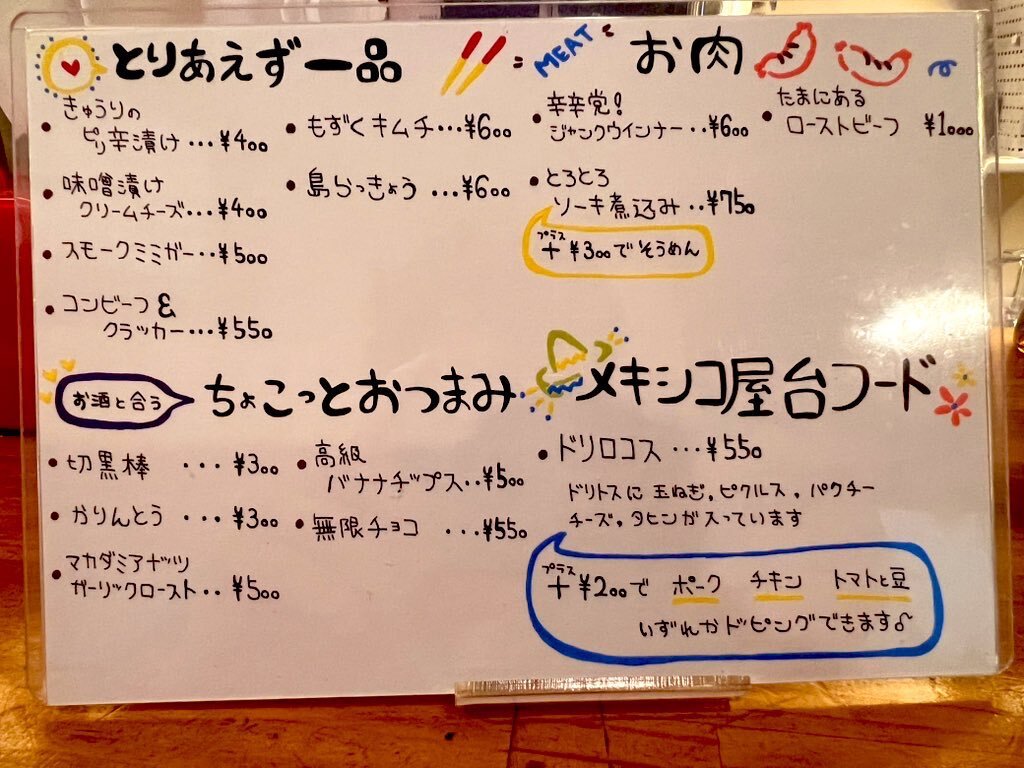 とりあえず一品
きゅうりの
ピリ辛漬け…¥400
味噌漬け
クリームチーズ…¥400
スモークミミガー…¥500
コンビーフ&
クラッカー…¥550
もずくキムチ…¥600
島らっきょう…¥600
MEAT お肉
辛辛党!
ジャンクウインナー‥¥600
とろとろ
ソーキ煮込み‥¥750
プラス
+¥300でそうめん
たまにある
ローストビーフ ¥1000
お酒と合う ちょこっとおつまみ
切黒棒 …¥300
かりんとう …¥300
マカダミアナッツ
ガーリックロースト‥¥500
高級
バナナチップス‥¥500
無限チョコ …¥550
メキシコ屋台フード
ドリロコス…¥550
ドリトスに玉ねぎ,ピクルス,パクチー
チーズ,タヒンが入っています
プラス
+¥200で ポーク チキン トマトと豆
いずれかトッピングできます♪